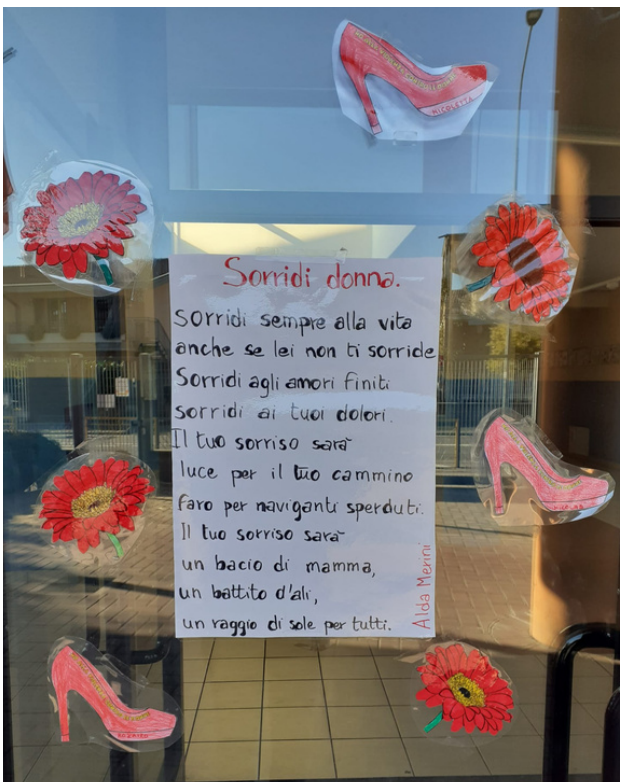 NICOLETTA
Sorridi donna.
Sorridi sempre alla vita
anche se lei non ti sorride
Sorridi agli amori finiti
sorridi ai tuoi dolori.
Il tuo sorriso sarà
luce per il tuo cammino
faro per naviganti sperduti.
Il tuo sorriso sarà
un bacio di mamma,
un battito d'ali,
un raggio di sole per tutti.
Alda Merini